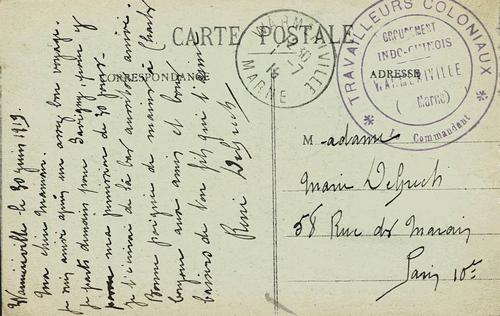 CARTE POSTALE
CORRESPONDANCE
ADRESSE
WARMERIVILLE
MARNE
TRAVAILLEURS COLONIAUX
GROUPEMENT
INDO-CHINOIS
WARMERIVILLE
(Marne)
Commandant
Warmeriville le 30 juin 1919.
Ma chère maman.
je suis arrivé après un assez bon voyage.
je parts demain pour Savigny, pour y
ma permission de 30 jours.
je t'écrirai de là bas aussitôt arrivé.
Bonne poignée de mains à Charles
bonjour aux amis et bons
baisers de ton fils qui t'aime
René Delpech
Madame
Marie Delpech
58 Rue du Marais
Paris 10e